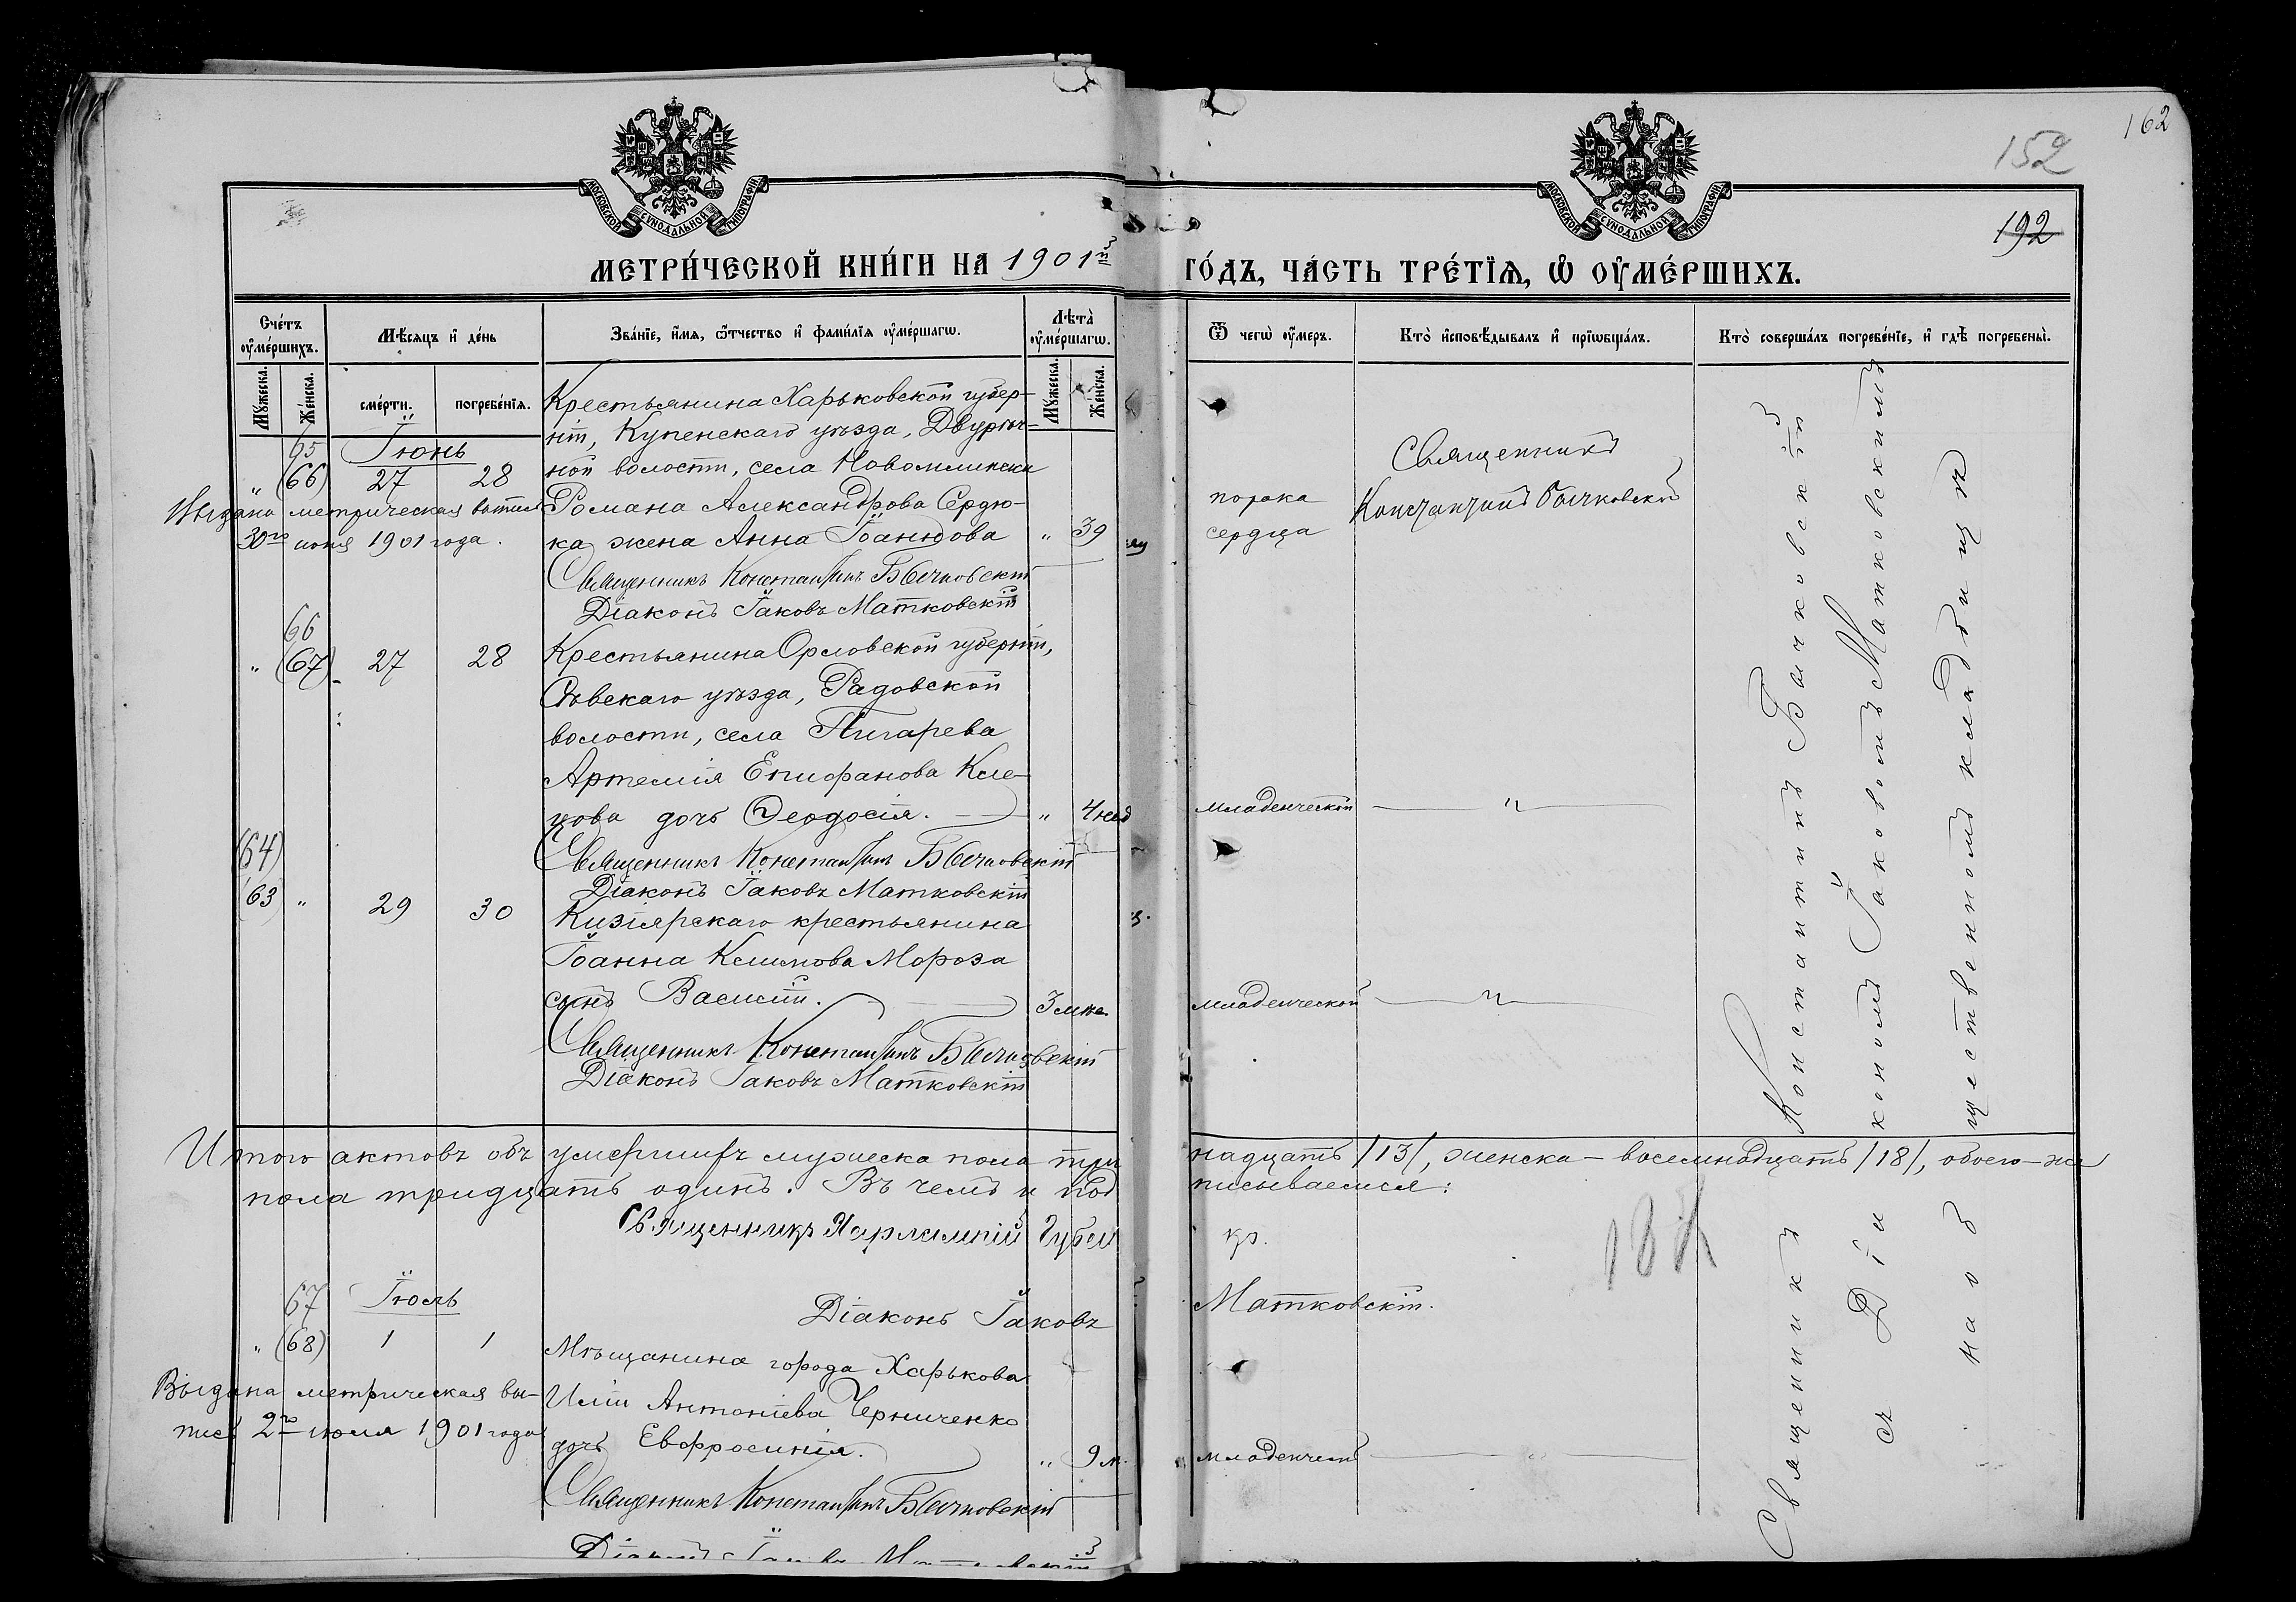 162
152
192
МОСКОВСКОЙ СѴНОДАЛЬНОЙ ТИПОГРАФІИ
МОСКОВСКОЙ СѴНОДАЛЬНОЙ ТИПОГРАФІИ
МЕТРИ́ЧЕСКОЙ КНИ́ГИ НА 1901й
ГО́ДЪ, ЧА́СТЬ ТРЕ́ТЇѦ, Ѡ҆ ОУ҆МЕ́РШИХЪ.
Сче́тъ оу҆ме́ршихъ.
Мѣ́сѧцъ и҆ де́нь
Зва́нїе, и҆́мѧ, ѻ҆́тчество и҆ фами́лїѧ оу҆ме́ршагѡ.
Лѣ́та оу҆ме́ршагѡ.
Ѿ чегѡ̀ оу҆́меръ.
Кто̀ и҆сповѣ́дывалъ и҆ прїѡбща́лъ.
Кто̀ соверша́лъ погребе́нїе, и҆ гдѣ̀ погребены̀.
Мꙋ́жеска.
Же́нска.
сме́рти.
погребе́нїѧ.
Мꙋ́жеска.
Же́нска.
65
Іюнь
" (66) 27 28
Крестьянина Харьковской губер-
ніи, Купенскаго уѣзда, Двуреч-
ной волости, села Новомлинска
Романа Александрова Сердю-
ка жена Анна Іоаннова " 39
порока
сердца
Священникъ
Константинъ Бычковскій
Выдана метрическая выпись
30го іюня 1901 года.
Священникъ Константинъ Бычковскій
Діаконъ Іаковъ Матковскій
66
" (67) 27 28
Крестьянина Орловской губерніи,
Сѣвскаго уѣзда, Радовской
волости, села Пигарева
Артемія Епифанова Кле-
цова дочь Ѳеодосія. " 4 нед
младенческой "
Священникъ Константинъ Бычковскій
Діаконъ Іаковъ Матковскій
(64)
(63) " 29 30
Кизіярскаго крестьянина
Іоанна Климова Мороза
сынъ Василій. 3 мѣс.
младенческой "
Священникъ Константинъ Бычковскій
Діаконъ Іаковъ Матковскій
Итого актовъ объ умершихъ мужеска пола три
надцать /13/, женска – восемнадцать /18/, обоего-же
пола тридцать одинъ. Въ чемъ и под
писываемся:
Священникъ Харлампій
Діаконъ Іаковъ
Матковскій.
67
Іюль
" (68) 1 1
Мѣщанина города Харькова
Иліи Антоніева Черниченко
дочь Евфросинія. " 9 м.
младенческ "
Выдана метрическая вы-
пись 2го іюля 1901 года
Священникъ Константинъ Бычковскій
Діаконъ Іаковъ Матковскій
Священникъ Константинъ Бычковскій
съ Діакономъ Іаковомъ Матковскимъ
на общественномъ кладбищѣ